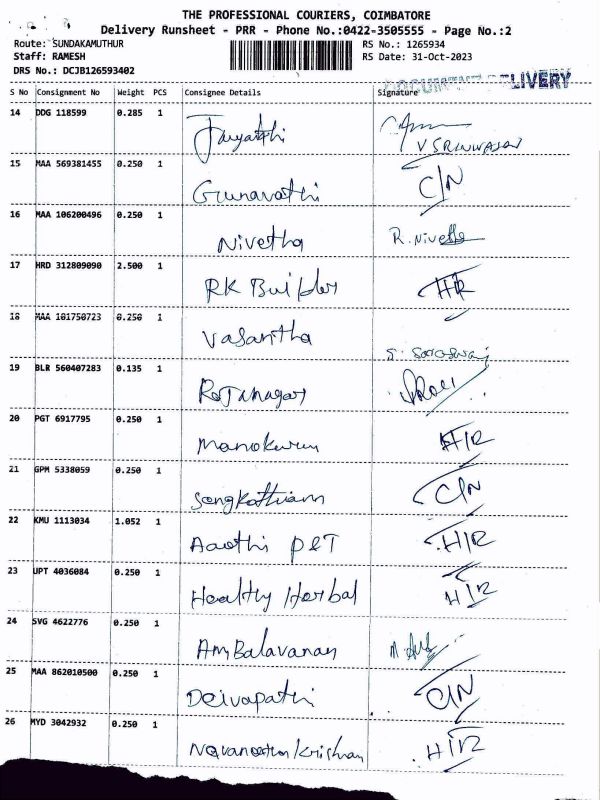 THE PROFESSIONAL COURIERS, COIMBATORE
Delivery Runsheet - PRR - Phone No.:0422-3505555 - Page No.:2
Route: SUNDAKAMUTHUR RS No.: 1265934
Staff: RAMESH RS Date: 31-Oct-2023
DRS No.: DCJB126593402
DOCUMENT DELIVERY
S No Consignment No Weight PCS Consignee Details Signature
14 DDG 118599 0.285 1
V SRINIVASAN
15 MAA 569381455 0.250 1 Gunavathi C/N
16 MAA 106200496 0.250 1 Nivetha R. Nivetha
17 HRD 312809090 2.500 1 RK Builder H/R
18 MAA 101750723 0.250 1 Vasantha
S. Saraswathi
19 BLR 560407283 0.135 1
20 PGT 6917795 0.250 1 H/R
21 GPM 5338059 0.250 1 C/N
22 KMU 1113034 1.052 1 H/R
23 UPT 4036084 0.250 1 Healthy Herbal H/R
24 SVG 4622776 0.250 1 Ambalavanan
25 MAA 862010500 0.250 1 Deivapathi C/N
26 MYD 3042932 0.250 1 H/R